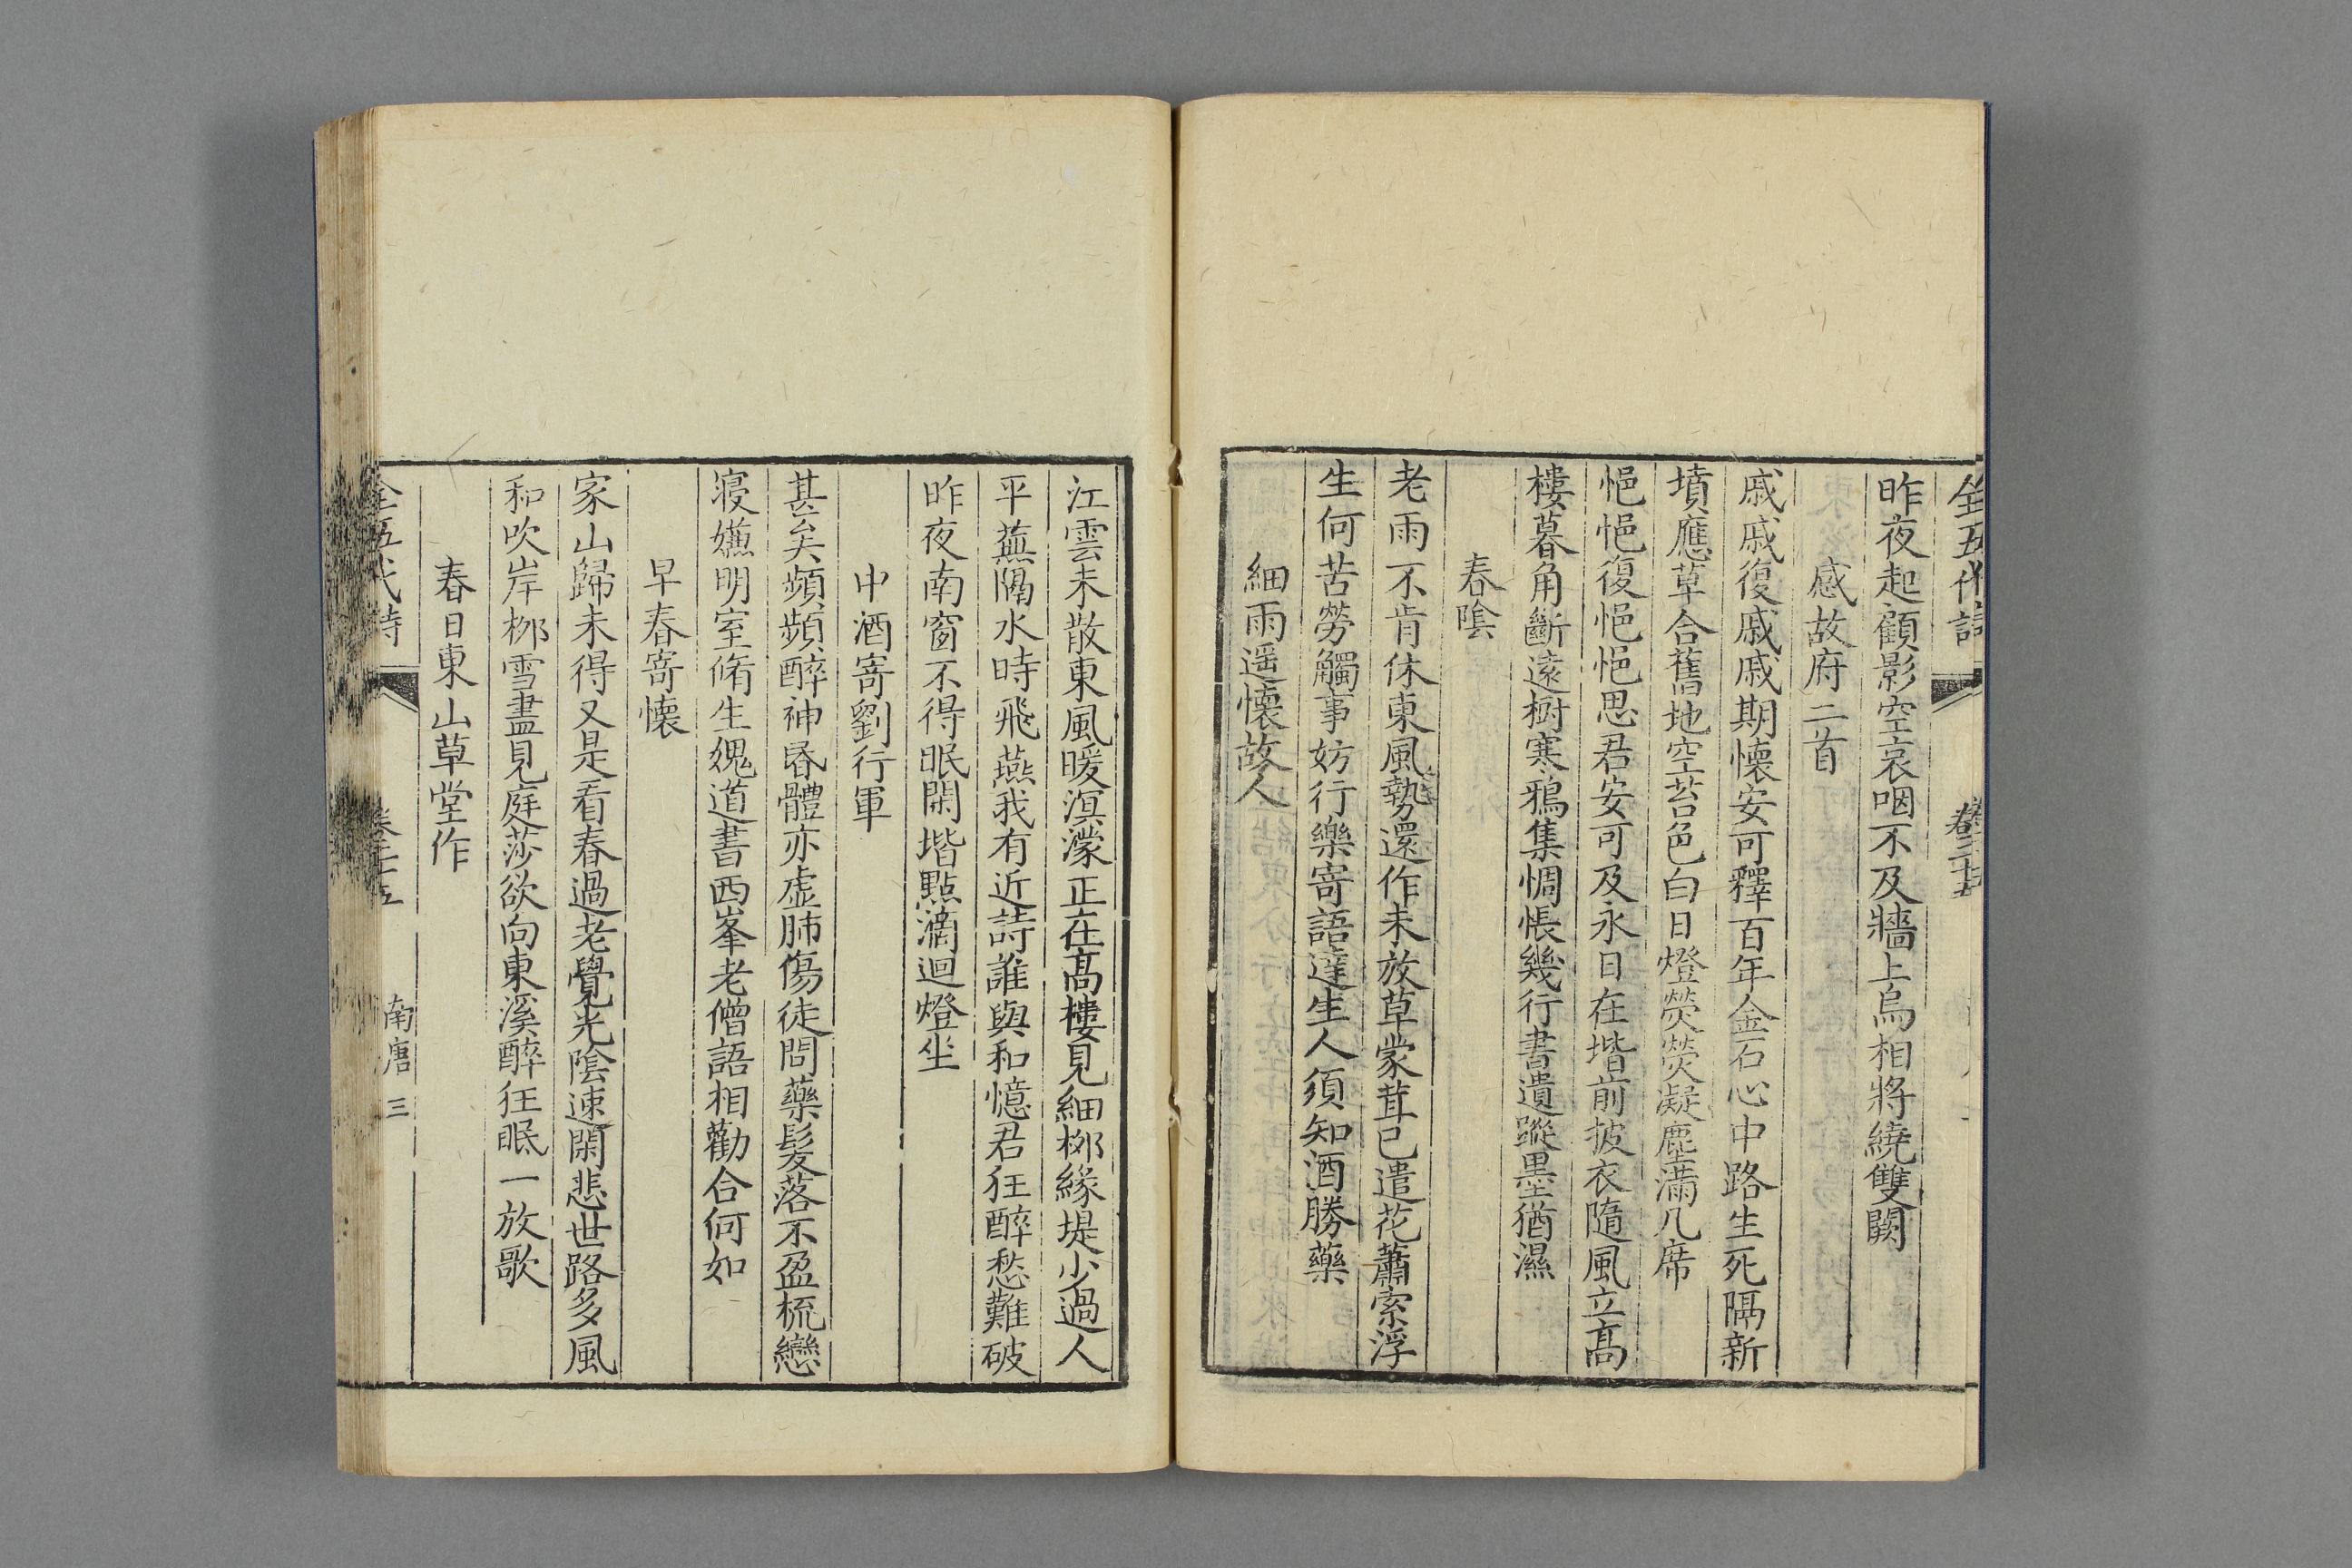 全五代詩 卷二十五
昨夜起顧影空哀咽不及牆上烏相將繞雙闕
感故府二首
戚戚復戚戚期懷安可釋百年金石心中路生死隔新
墳應草合舊地空苔色白日燈熒熒凝塵滿几席
悒悒復悒悒思君安可及永日在堦前披衣隨風立高
樓暮角斷遠樹寒鴉集惆悵幾行書遺蹤墨猶濕
春陰
老雨不肯休東風勢還作未放草蒙茸已遣花蕭索浮
生何苦勞觸事妨行樂寄語達生人須知酒勝藥
細雨遥懷故人
江雲未散東風暖溟濛正在高樓見細桞緣堤少過人
平蕪隔水時飛燕我有近詩誰與和憶君狂醉愁難破
昨夜南窗不得眠閑堦點滴迴燈坐
中酒寄劉行軍
甚矣頻頻醉神昬體亦虚肺傷徒問藥髮落不盈梳戀
寢嫌明室脩生媿道書西峯老僧語相勸合何如
早春寄懷
家山歸未得又是看春過老覺光陰速閑悲世路多風
和吹岸桞雪盡見庭莎欲向東溪醉狂眠一放歌
春日東山草堂作
全五代詩 卷二十五 南唐 三